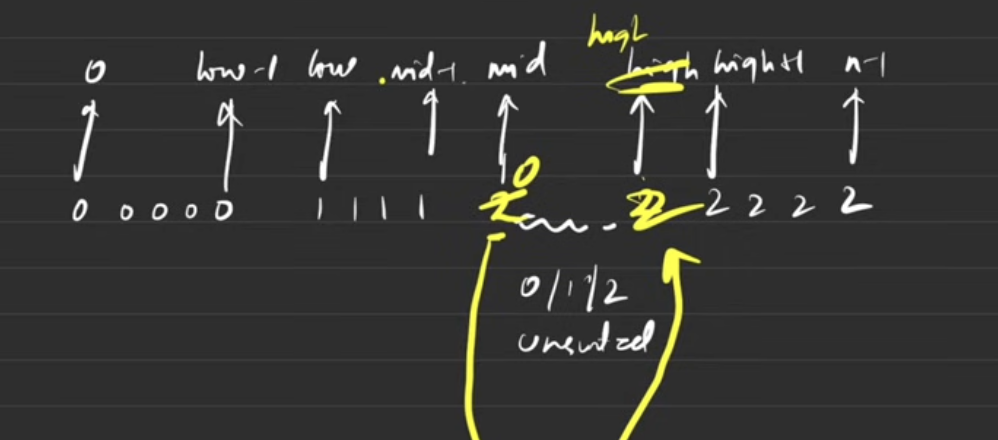 high
0 low-1 low mid-1 mid high high+1 n-1
0
0 0 0 0 0 1 1 1 1 2 2 2 2 2 2
0/1/2
unsorted